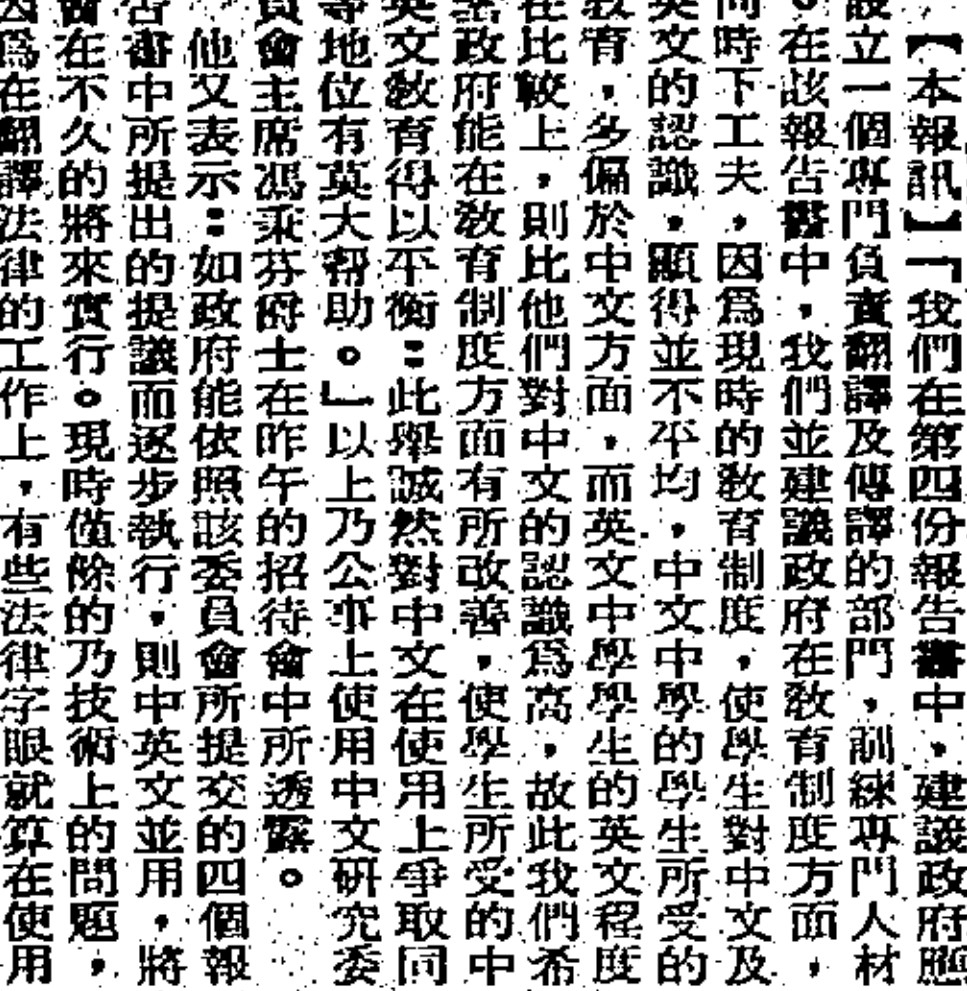 【本報訊】「我們在第四份報告書中，建議政府應
設立一個專門負責翻譯及傳譯的部門，訓練專門人材
。在該報告書中，我們並建議政府在敎育制度方面，
同時下工夫，因爲現時的敎育制度，使學生對中文及
英文的認識，顯得並不平均，中文中學的學生所受的
敎育，多偏於中文方面，而英文中學學生的英文程度
在比較上，則比他們對中文的認識爲高，故此我們希
望政府能在敎育制度方面有所改善，使學生所受的中
英文敎育得以平衡：此舉誠然對中文在使用上爭取同
等地位有莫大幫助。」以上乃公事上使用中文硏究委
員會主席馮秉芬爵士在昨午的招待會中所透露。
他又表示：如政府能依照該委員會所提交的四個報
告書中所提出的提議而逐步執行，則中英文並用，將
會在不久的將來實行。現時僅餘的乃技術上的問題，
因爲在翻譯法律的工作上，有些法律字眼就算在使用